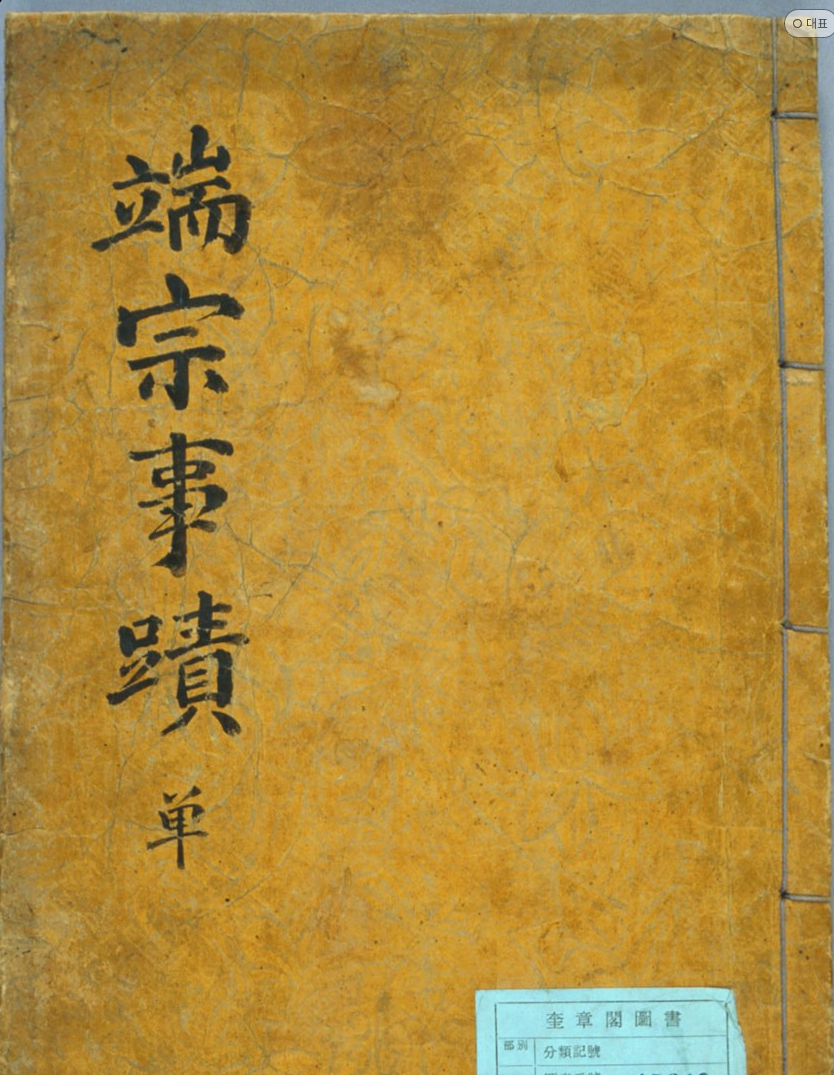 端宗事蹟 単
大표
奎章閣圖書
部別
分類記號